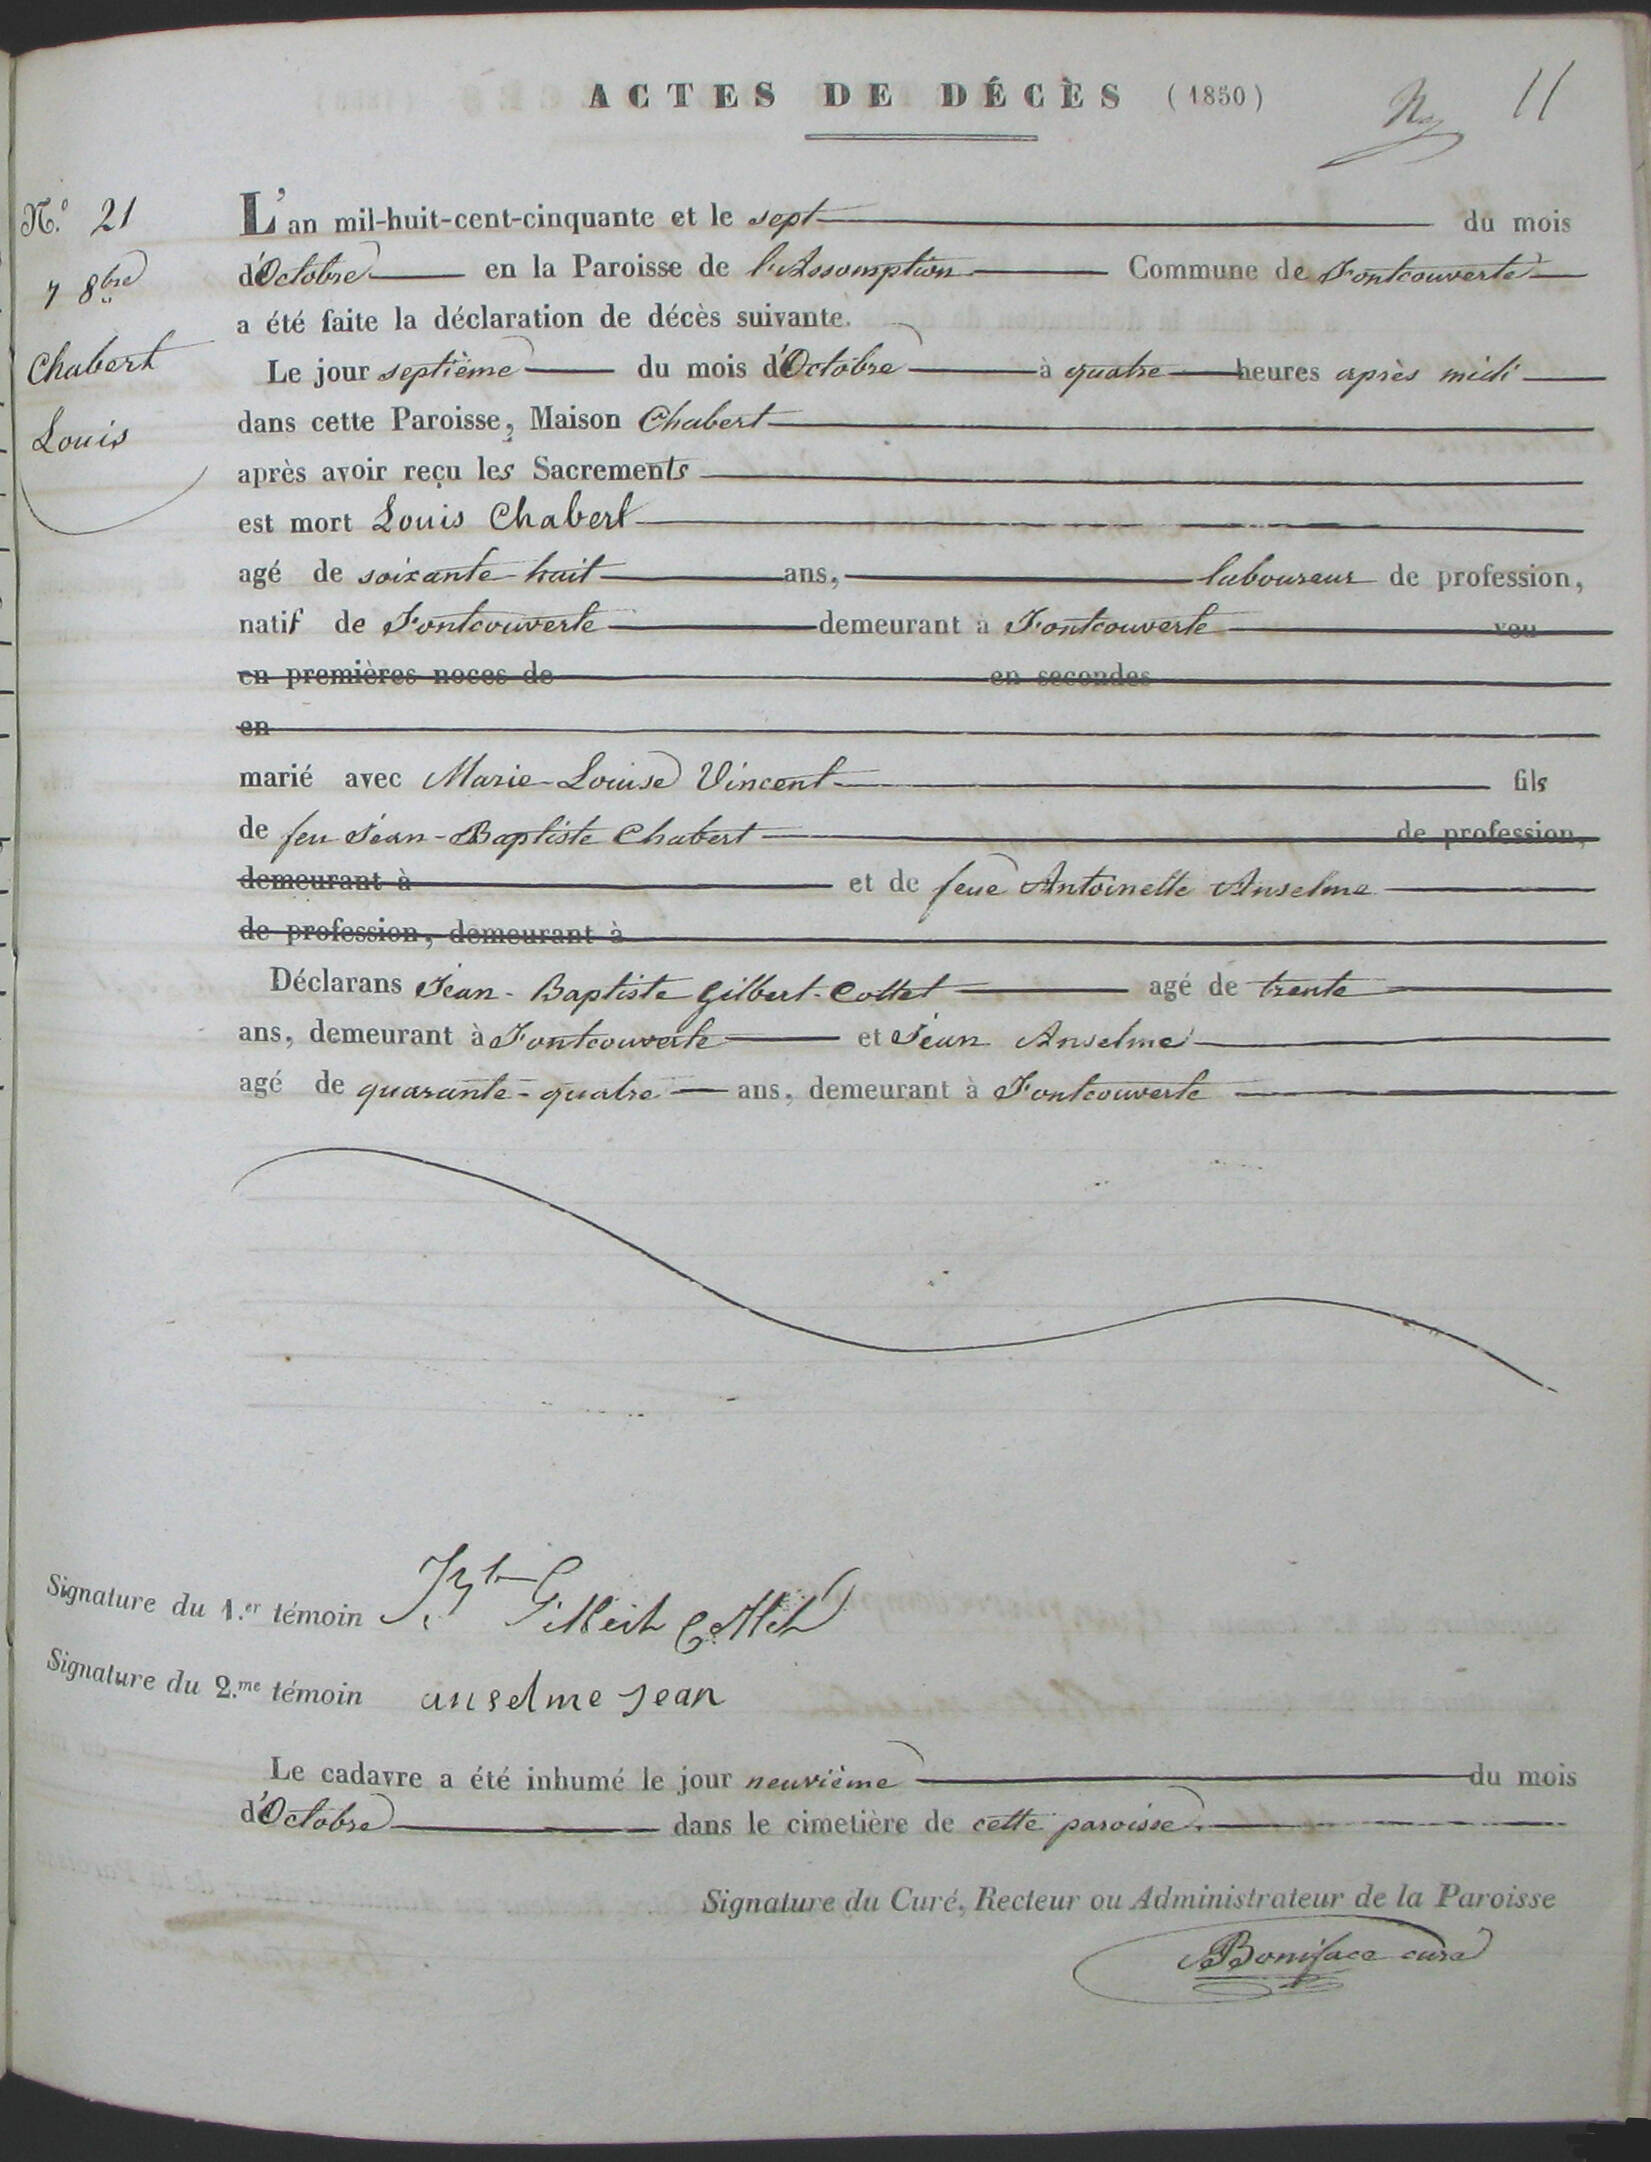 ACTES DE DÉCÈS (1850)
11
N.º 21
7 8bre
Chabert
Louis
L'an mil-huit-cent-cinquante et le sept du mois
d'Octobre en la Paroisse de l'Assomption Commune de Fontcouverte
a été faite la déclaration de décès suivante.
Le jour septième du mois d'Octobre à quatre heures après midi
dans cette Paroisse, Maison Chabert
après avoir reçu les Sacrements
est mort Louis Chabert
agé de soixante-huit ans, laboureur de profession,
natif de Fontcouverte demeurant à Fontcouverte veu
en premières noces de en secondes
en
marié avec Marie-Louise Vincent fils
de feu Jean-Baptiste Chabert de profession,
demeurant à et de feue Antoinette Anselme
de profession, demeurant à
Déclarans Jean-Baptiste Gilbert-Collet agé de trente
ans, demeurant à Fontcouverte et Jean Anselme
agé de quarante-quatre ans, demeurant à Fontcouverte
Signature du 1.er témoin J Bte Gilbert Collet
Signature du 2.me témoin anselme jean
Le cadavre a été inhumé le jour neuvième du mois
d'Octobre dans le cimetière de cette paroisse.
Signature du Curé, Recteur ou Administrateur de la Paroisse
Boniface curé